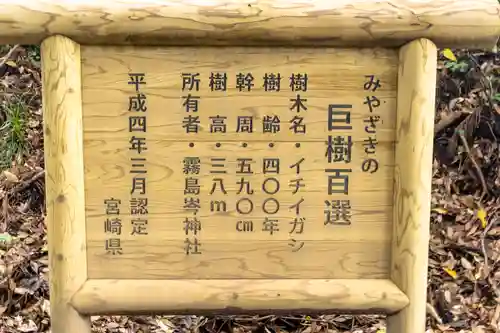 みやざきの
巨樹百選
樹木名・イチイガシ
樹齢・四〇〇年
幹周・五九〇㎝
樹高・三八ｍ
所有者・霧島岑神社
平成四年三月認定
宮崎県